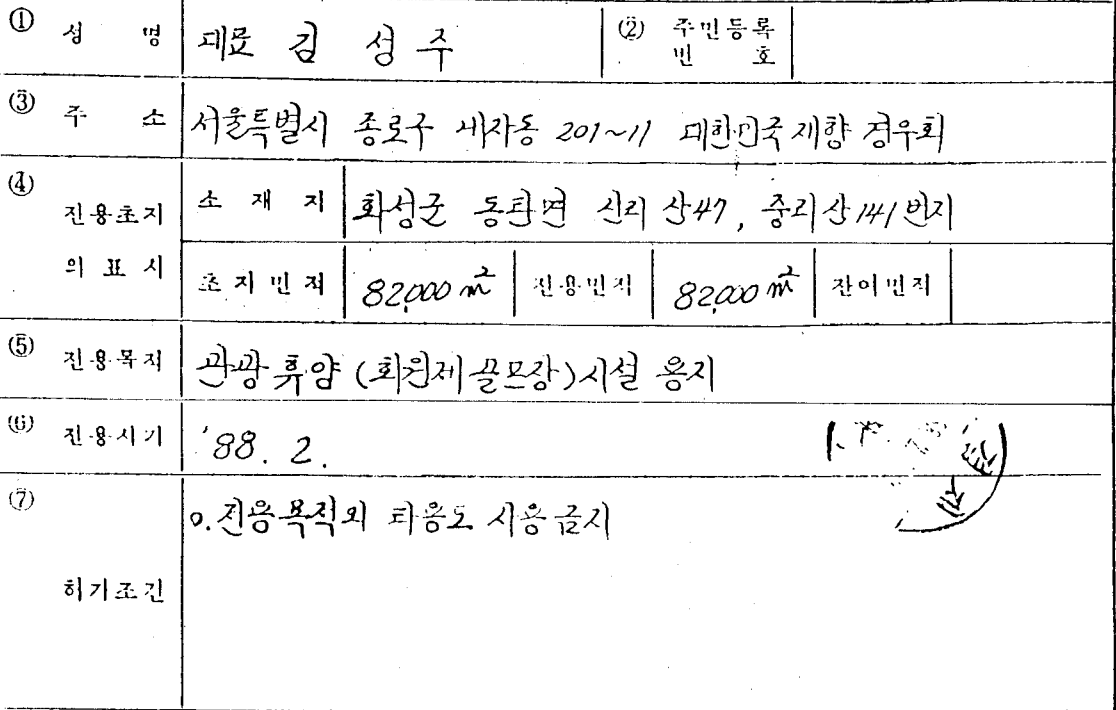 ① 성 명 대표 김 성 주 ② 주민등록 번 호
③ 주 소 서울특별시 종로구 내자동 201~11 대한민국 재향 경우회
④ 전용초지의 표시 소 재 지 화성군 동탄면 신리 산47, 중리 산141번지
초지면적 82,000㎡ 전용면적 82,000㎡ 잔여면적
⑤ 전용목적 관광 휴양 (회원제 골프장)시설 용지
⑥ 전용시기 '88. 2.
⑦ 허가조건 o. 전용목적외 타용도 사용금지